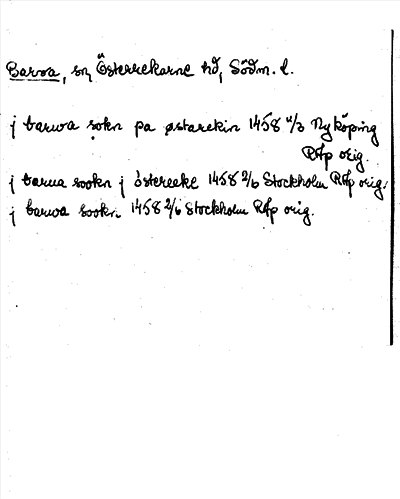 Barva, sn, Österrekarne hd, Södm. l.
j barwa sokn pa østarekin 1458 11/3 Nyköping
RAp orig.
j barua sookn j østereke 1458 2/6 Stockholm RAp orig.
j barwa sookn 1458 2/6 Stockholm RAp orig.